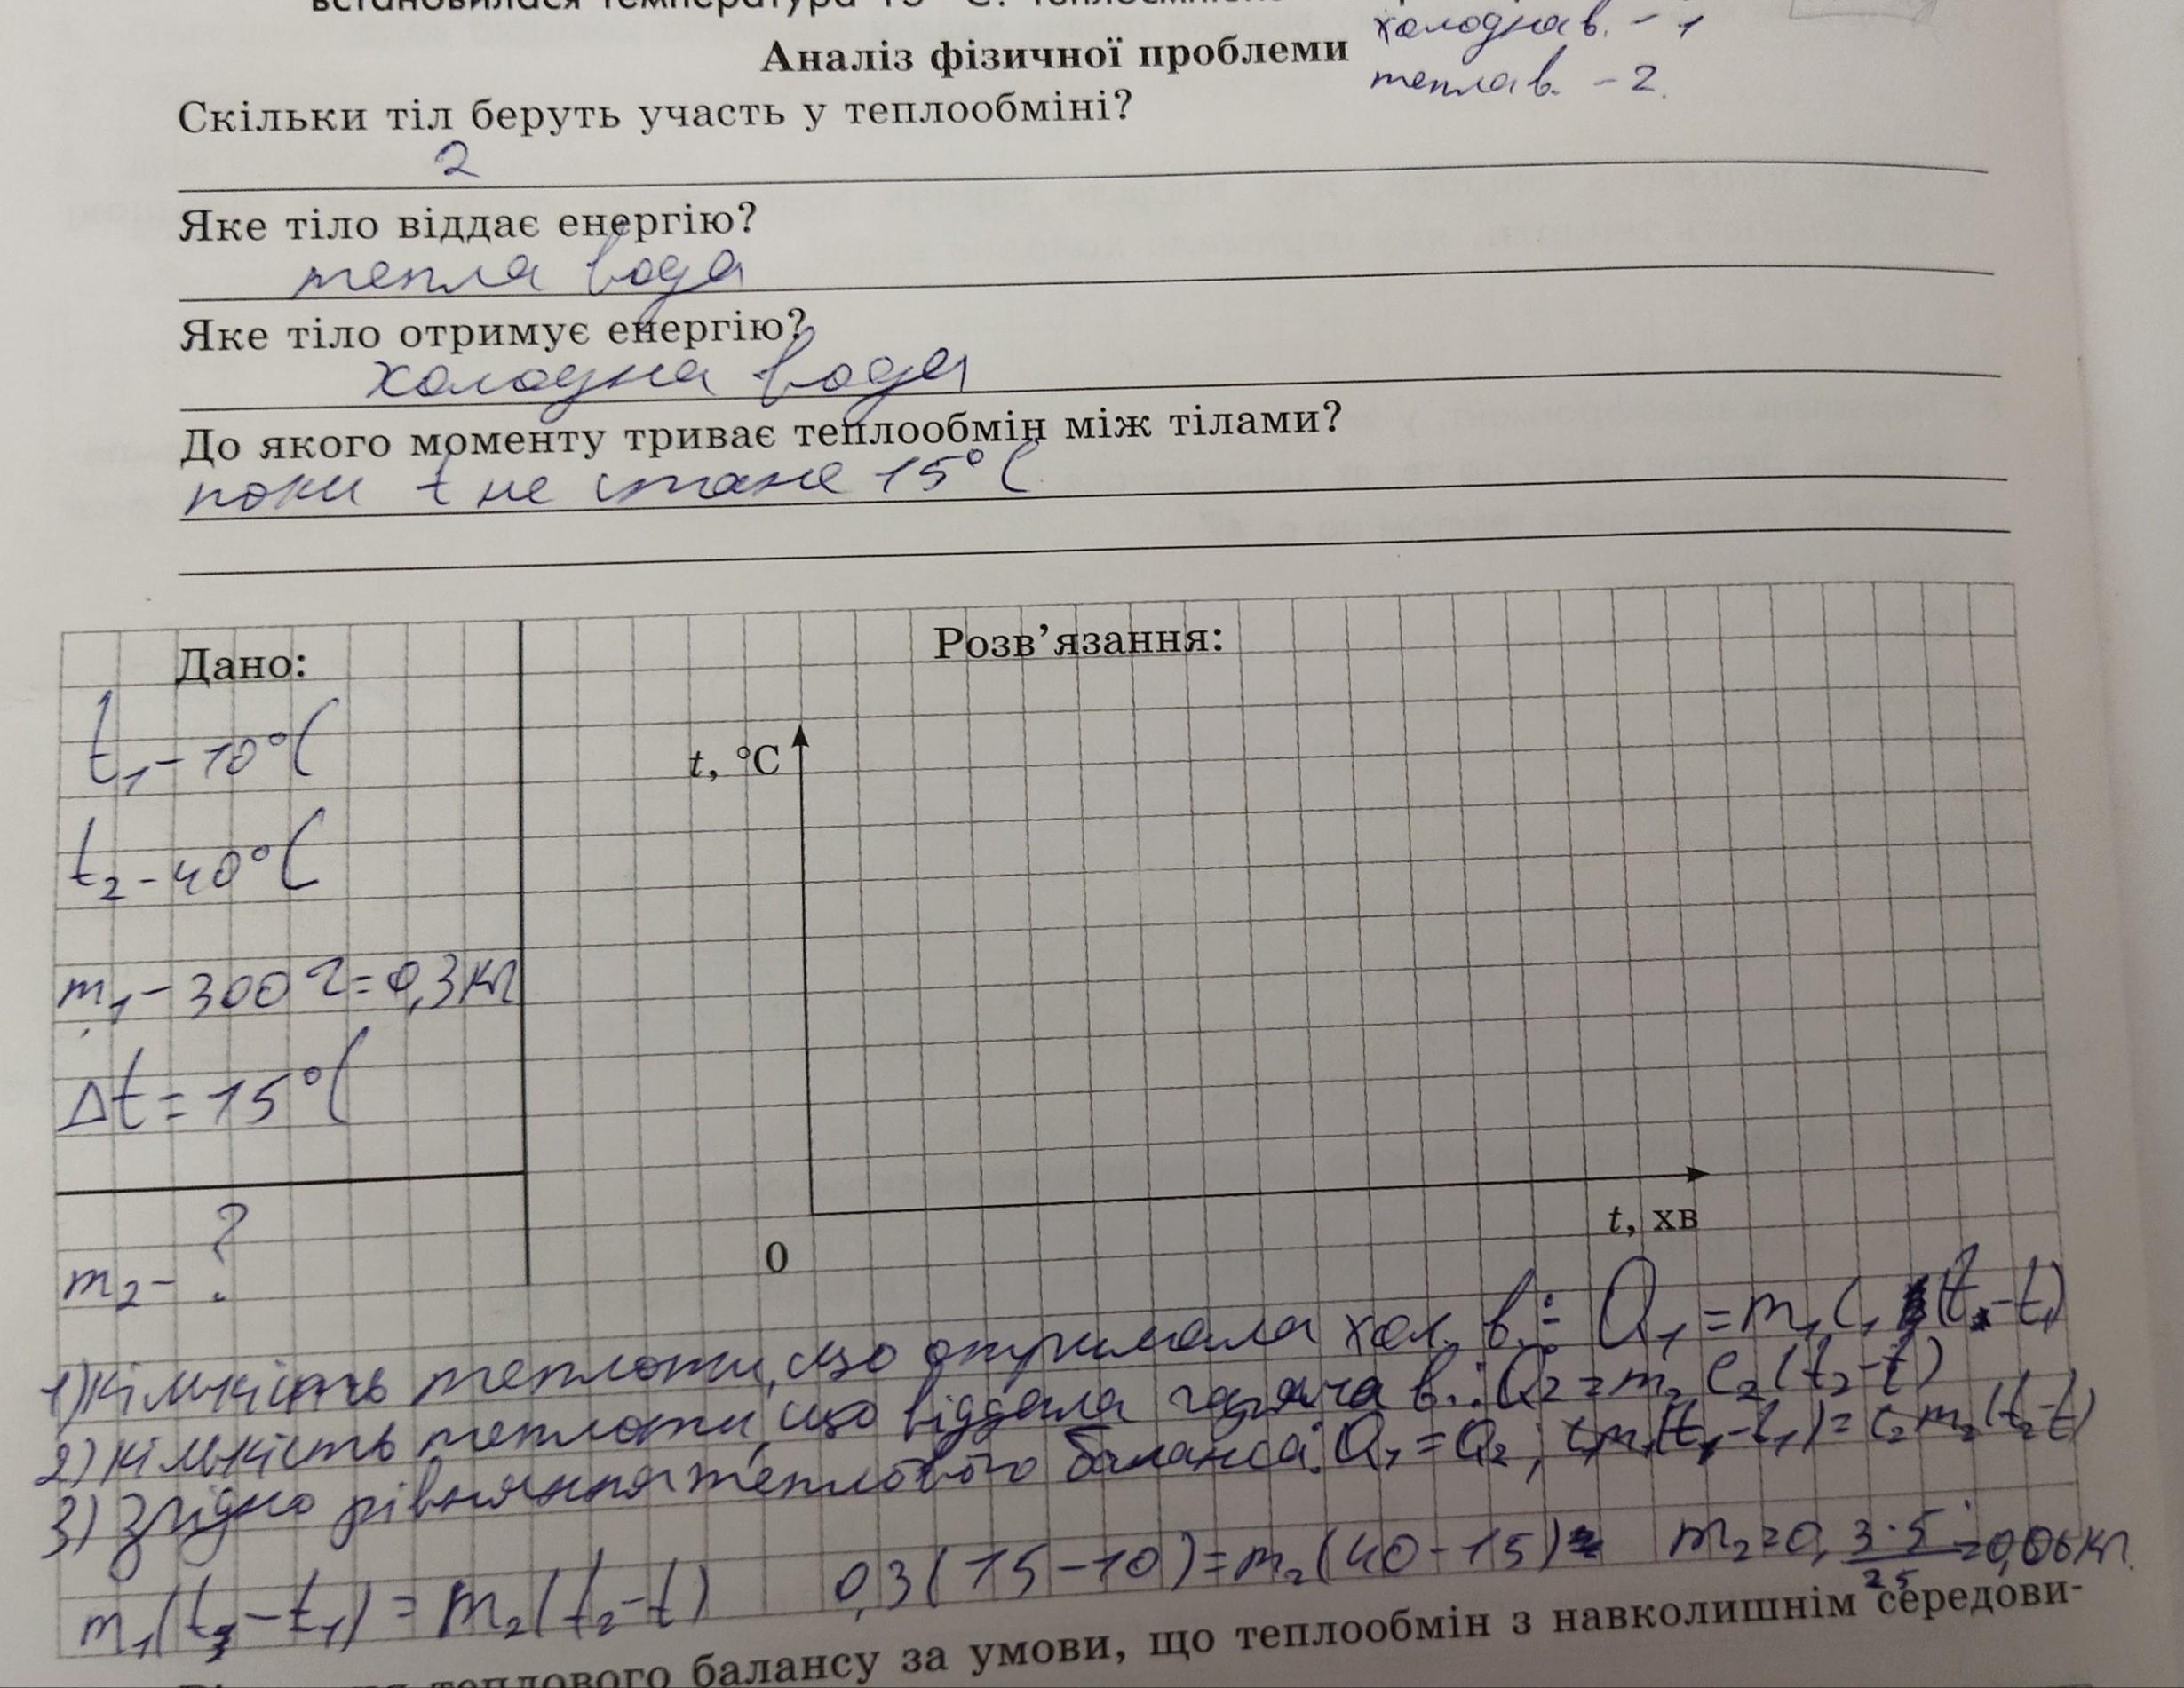 встановилася температура 15 °С. Теплоємністю
холодна в. - 1
Аналіз фізичної проблеми
тепла в. - 2.
Скільки тіл беруть участь у теплообміні?
2
Яке тіло віддає енергію?
тепла вода
Яке тіло отримує енергію?
холодна вода
До якого моменту триває теплообмін між тілами?
поки t не стане 15°C
Дано:
Розв’язання:
t₁ - 10°C
t, °C
t₂ - 40°C
m₁ - 300 г = 0,3 кг
Δt = 15°C
t, хв
0
m₂ - ?
1) кількість теплоти, що отримала хол. в.: Q₁ = m₁c₁(t - t₁)
2) кількість теплоти, що віддала гаряча в.: Q₂ = m₂c₂(t₂ - t)
3) Згідно рівняння теплового баланса: Q₁ = Q₂; c₁m₁(t - t₁) = c₂m₂(t₂ - t)
m₁(t - t₁) = m₂(t₂ - t) 0,3(15 - 10) = m₂(40 - 15) m₂ = 0,3·5/25 = 0,06 кг.
теплового балансу за умови, що теплообмін з навколишнім середови-